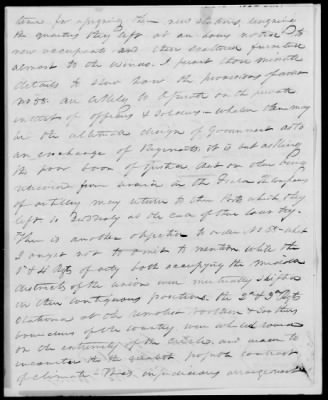 time for assigning their new stations, vacating
the quarters they left at an hours notice to
new occupants and their scattered furniture
almost to the winds. I present these minute
details to show how the provisions of order
No 58. are likely to operate on the private
interest of officers & soldiers – whatever there may
be the ultimate design of Government as to
an exchange of Regiments. it is but asking
the poor boon of justice that on their being
relieved from service in the Field the Companies
of artillery may return to their Posts which they
left so suddenly at the call of their country.
There is another objection to order No 58 – which
I ought not to omit to mention while the
1st & 4th Regts of arty both occupying the middle
districts of the union were mutually shifted
in their contiguous positions the 2d & 3d Regts
stationed at the remotest northern & southern
boundaries of the country were
on the extremity of the and made to
encounter the greatest possible contrast
of climate – This injudicious arrangement